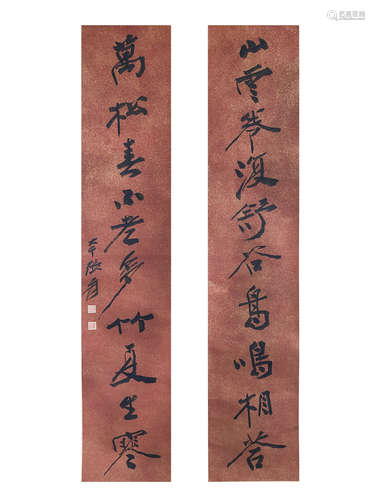 山雲卷復舒谷鳥鳴相答
萬松春不老多竹夏生寒
大千張爰